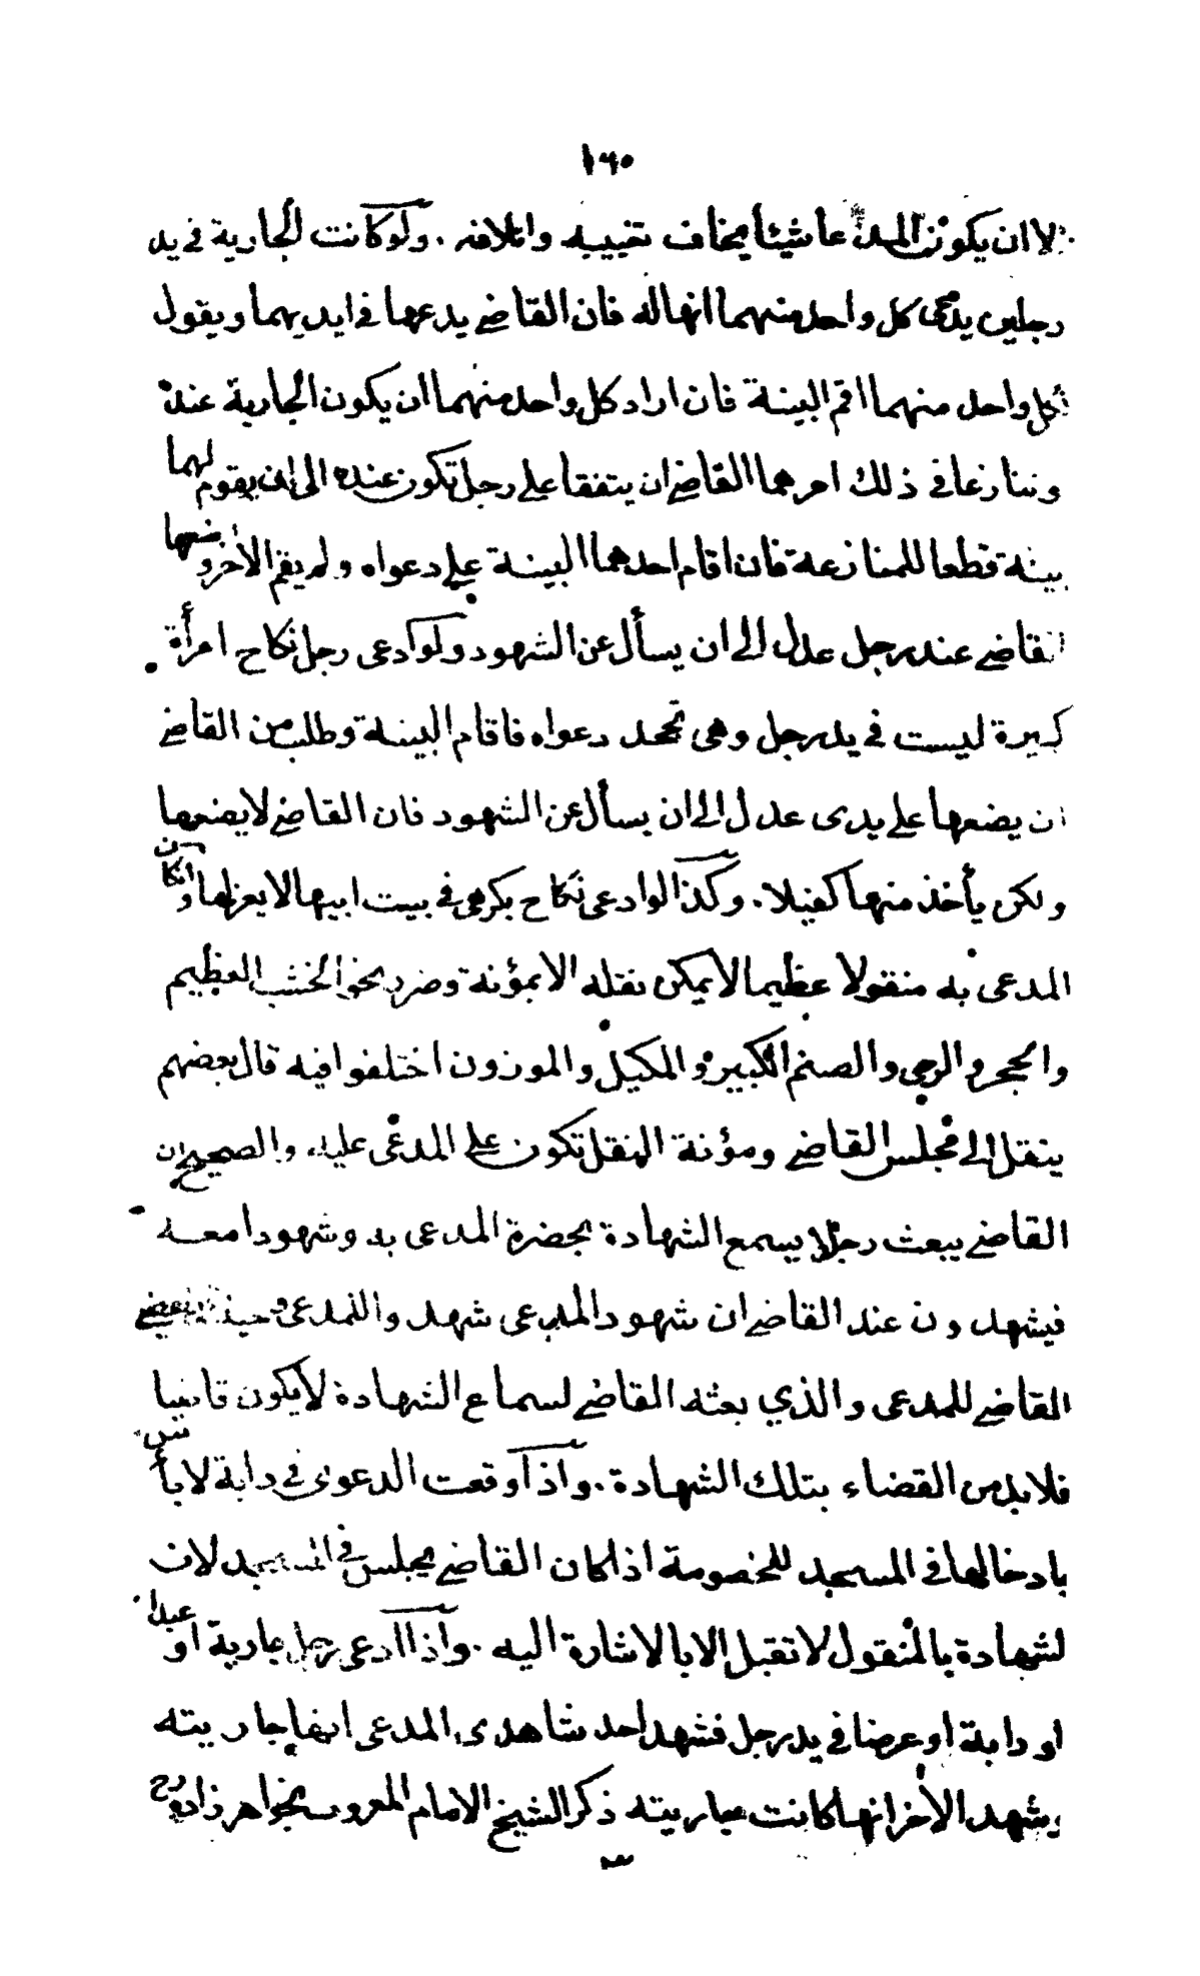 ١٦٥
الا ان يكون المدعا شيئا يخاف تغييبه واتلافه . ولو كانت الجارية في يد
رجلين يدعى كل واحد منهما انها له فان القاضي يدعها في ايديهما ويقول
لكل واحد منهما اقم البينة فان اراد كل واحد منهما ان يكون الجارية عنده
وتنازعا في ذلك امرهما القاضي ان يتفقا على رجل تكون عنده الى ان يقوم لهما
بينة قطعا للمنازعة فان اقام احدهما البينة على دعواه ولم يقم الاخر وضعها
القاضي عند رجل عدل الى ان يسأل عن الشهود ولو ادعى رجل نكاح امرأة
كبيرة ليست في يد رجل وهى تجحد دعواه فاقام البينة وطلب من القاضي
ان يضعها على يدى عدل الى ان يسأل عن الشهود فان القاضي لا يضعها
ولكن يأخذ منها كفيلا . وكذا لو ادعى نكاح بكر هى في بيت ابيها لا يعزلها وان كان
المدعى به منقولا عظيما لا يمكن نقله الا بمؤنة وضرر نحو الخشب العظيم
والحجر والرحى والصنم الكبير والمكيل والموزون اختلفوا فيه قال بعضهم
ينقل الى مجلس القاضي ومؤنة النقل تكون على المدعى عليه والصحيح ان
القاضي يبعث رجلا يسمع الشهادة بحضرة المدعى به وشهودا معه
فيشهدون عند القاضي ان شهود المدعى شهدوا للمدعى وحينئذ يقضي
القاضي للمدعى والذي بعثه القاضي لسماع الشهادة لا يكون قاضيا
فلا بد من القضاء بتلك الشهادة . واذا وقعت الدعوى في دابة لا بأس
بادخالها في المسجد للخصومة اذا كان القاضي يجلس في المسجد لان
الشهادة بالمنقول لا تقبل الا بالاشارة اليه . واذا ادعى رجل جارية او عبدا
او دابة او عرضا في يد رجل فشهد احد شاهدى المدعى انها جاريته
وشهد الاخر انها كانت جاريته ذكر الشيخ الامام المعروف بخواهر زاده رح